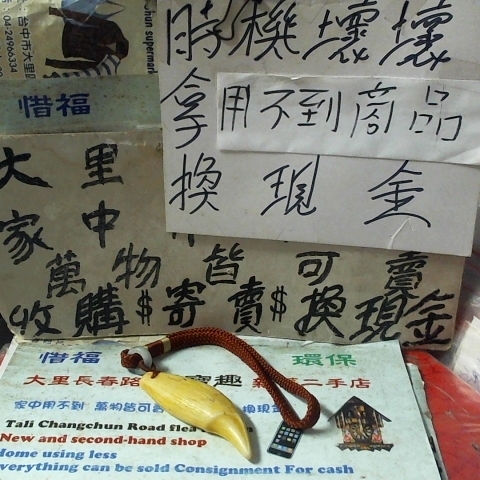 hun supermark
台中市大里區
04-24966334
惜福
時機壞壞
拿用不到商品
換現金
大里
家中
萬物皆可賣
收購$寄賣$換現金
惜福 環保
大里長春路 寶趣 新 二手店
家中用不到 萬物皆可 換現金
Tali Changchun Road flea
New and second-hand shop
Home using less
verything can be sold Consignment For cash